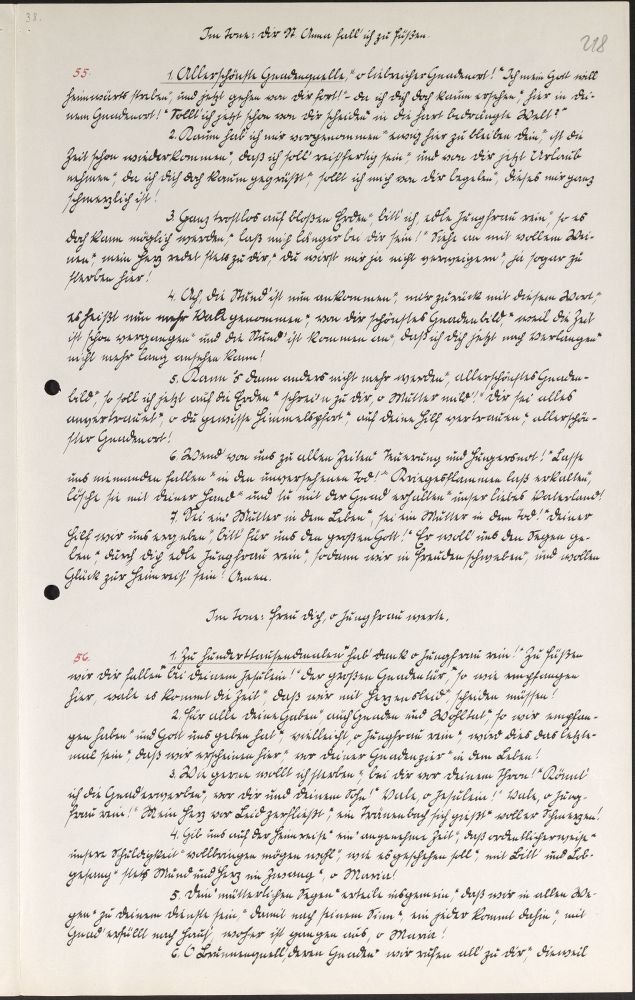 38.
Im Tone: Dir St. Anna fall' ich zu Füßen.
218
55. 1. Allerschönste Gnadenquelle," o liebreicher Gnadenort!" Ich mein Gott will
heimwärts streben," und jetzt gehen von dir fort!" da ich dich doch kaum ersehen," hier in dei-
nem Gnadenort!" Sollt' ich jetzt schon von dir scheiden" in die hart bedrängte Welt?"
2. Kaum hab' ich mir vorgenommen" ewig hier zu bleiben dein," ist die
Zeit schon wiederkommen," daß ich soll reisfertig sein," und von dir jetzt Urlaub
nehmen," da ich dich doch kaum gegrüßt," sollt ich mich von dir begeben," dieses mir ganz
schmerzlich ist!
3. Ganz trostlos auf bloßen Erden" bitt' ich edle Jungfrau rein," so es
doch kann möglich werden," laß mich länger bei dir sein!" Siehe an mit vollem Wei-
nen," mein Herz redet stets zu dir," du wirst mir ja nicht verweigern," ja sogar zu
sterben hier!
4. Ach, die Stund' ist nun ankommen," mir zurück mit diesem Wort,"
es heißt nun mehr Vale genommen," von dir schönstes Gnadenbild," weil die Zeit
ist schon vergangen" und die Stund' ist kommen an" daß ich dich jetzt nach Verlangen"
nicht mehr lang ansehen kann!
5. Kann's denn anders nicht mehr werden," allerschönstes Gnaden-
bild," so soll ich jetzt auf die Erden" schrei'n zu dir, o Mutter mild!" Dir sei alles
anvertrauet," o du gewisse Himmelspfort'," auf deine Hilf vertrauen," allerschön-
ster Gnadenort!
6. Wend' von uns zu allen Zeiten" Teuerung und Hungersnot!" Lasse
uns niemanden fallen" in den unversehenen Tod!" Kriegesflammen laß erkalten,
lösche sie mit deiner Hand" und tu mit der Gnad' erhalten" unser liebes Vaterland!
7. Sei ein' Mutter in dem Leben," sei ein Mutter in dem Tod!" Deiner
Hilf wir uns ergeben," bitt' für uns den großen Gott!" Er woll' uns den Segen ge-
ben," durch dich edle Jungfrau rein," sodann wir in Freuden schweben," und wollen
Glück zur Heimreis' sein! Amen.
Im Tone: Freu dich, o Jungfrau werte.
56. 1. Zu hunderttausendmalen" hab' Dank o Jungfrau rein!" Zu Füßen
wir dir fallen" bei deinem Jesulein!" Der großen Gnaden tür," so wir empfangen
hier, vale es kommt die Zeit" daß wir mit Herzensleid" scheiden müssen!
2. Für alle deine Gaben, auch Gnaden und Wohltat," so wir empfan-
gen haben" und Gott uns geben hat," vielleicht, o Jungfrau rein," wird dies das letzte-
mal sein," daß wir erscheinen hier," vor deiner Gnadenzier" in dem Leben!
3. Wie gerne wollt ich sterben," bei dir vor deinem Thron!" Könnt'
ich die Gnad erwerben," vor dir und deinem Sohn!" Vale, o Jesulein!" Vale, o Jung-
frau rein!" Mein Herz vor Leid zerfließt," ein Tränenbach sich gießt" voller Schmerzen!
4. Gib uns auf der Heimreise" ein' angenehme Zeit," daß ordentlicherweise"
unsere Schuldigkeit" vollbringen mögen wohl," wie es geschehen soll," mit Bitt' und Lob-
gesang" stets Mund und Herz im Zwang," o Maria!
5. Dein' mütterlichen Segen" erteile insgemein," daß wir in allen We-
gen" zu deinem Dienste sein," damit nach seinem Sinn," ein jeder kommt dahin," mit
Gnad' erfüllt nach Haus', woher ist gangen aus, o Maria!
6. O Brunnenquell, deren Gnaden" wir rufen all' zu dir," dieweil